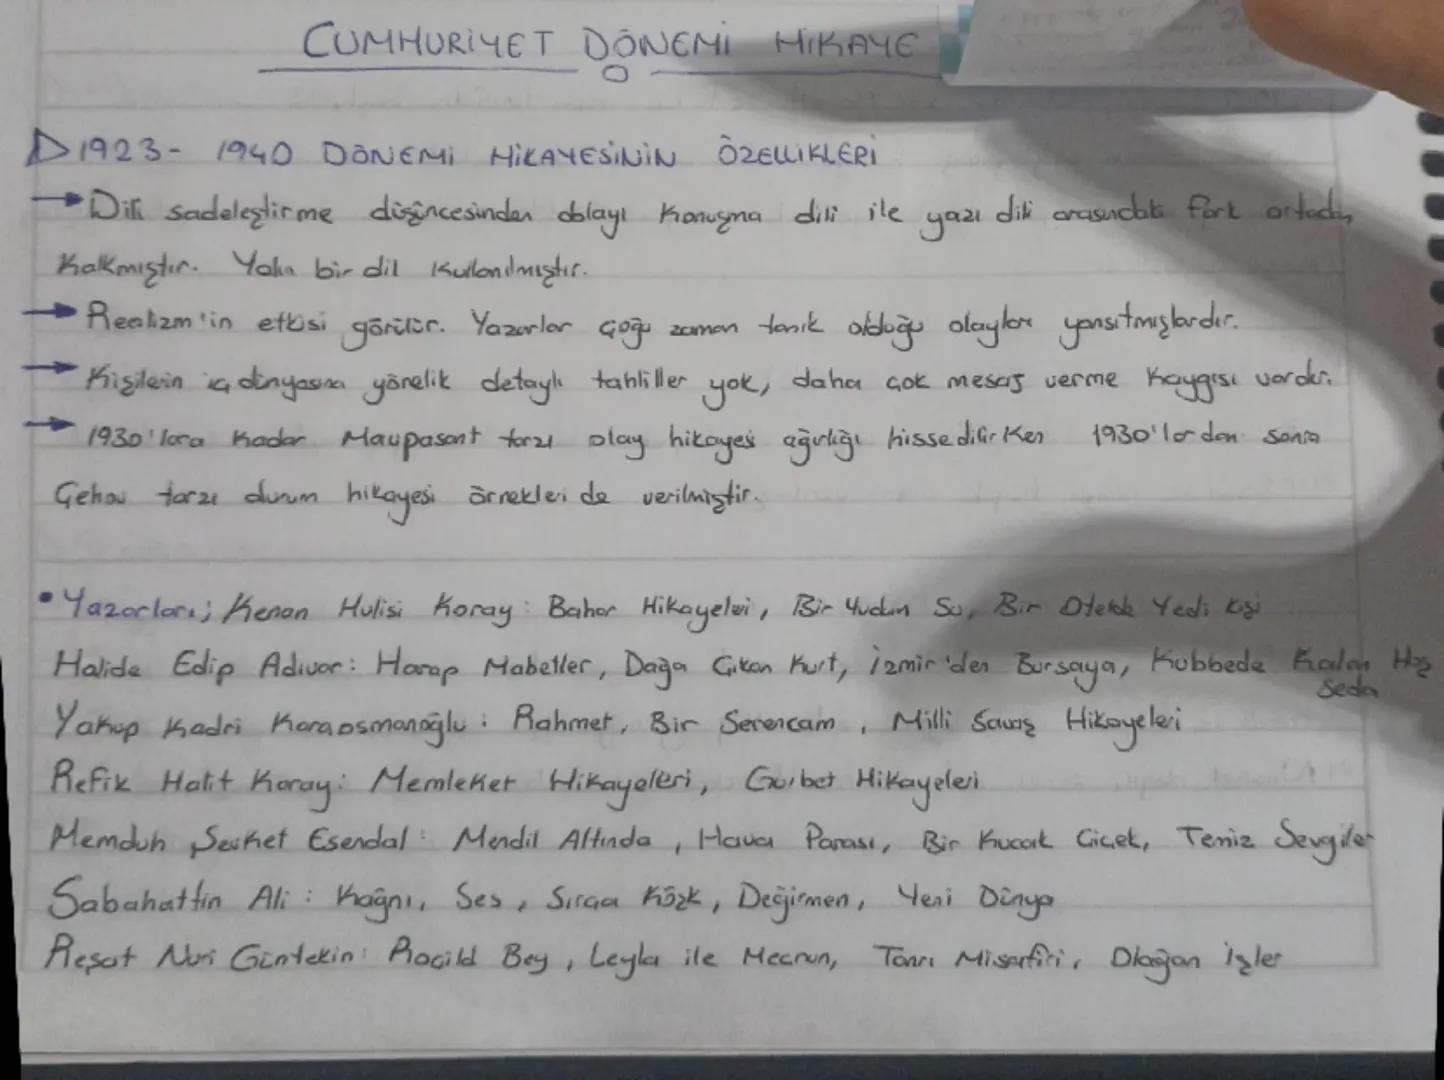 CUMHURİYET DÖNEMİ HİKAYE
1923- 1940 DÖNEMİ HİKAYESİNİN ÖZELLİKLERİ
→ Dili sadeleştirme düşüncesinden dolayı konuşma dili ile yazı dili arasındaki fark ortadan
kalkmıştır. Yalın bir dil kullanılmıştır.
→ Realizm'in etkisi görülür. Yazarlar çoğu zaman tanık olduğu olayları yansıtmışlardır.
→ Kişilerin iç dünyasına yönelik detaylı tahliller yok, daha çok mesaj verme kaygısı vardır.
→ 1930'lara kadar Maupasant tarzı olay hikayesi ağırlığı hissedilirken 1930'lardan sonra
Çehov tarzı durum hikayesi örnekleri de verilmiştir.
• Yazarları; Kenan Hulisi Koray: Bahar Hikayeleri, Bir Yudum Su, Bir Otelde Yedi Kişi
Halide Edip Adıvar: Harap Mabetler, Dağa Çıkan Kurt, İzmir'den Bursaya, Kubbede Kalan Hoş
Seda
Yakup Kadri Karaosmanoğlu: Rahmet, Bir Serencam, Milli Savaş Hikayeleri
Refik Halit Karay: Memleket Hikayeleri, Gurbet Hikayeleri
Memduh Şevket Esendal: Mendil Altında, Hava Parası, Bir Kucak Çiçek, Temiz Sevgiler
Sabahattin Ali: Kağnı, Ses, Sırça Köşk, Değirmen, Yeni Dünya
Reşat Nuri Güntekin: Roçild Bey, Leyla ile Mecnun, Tanrı Misafiri, Olağan İşler